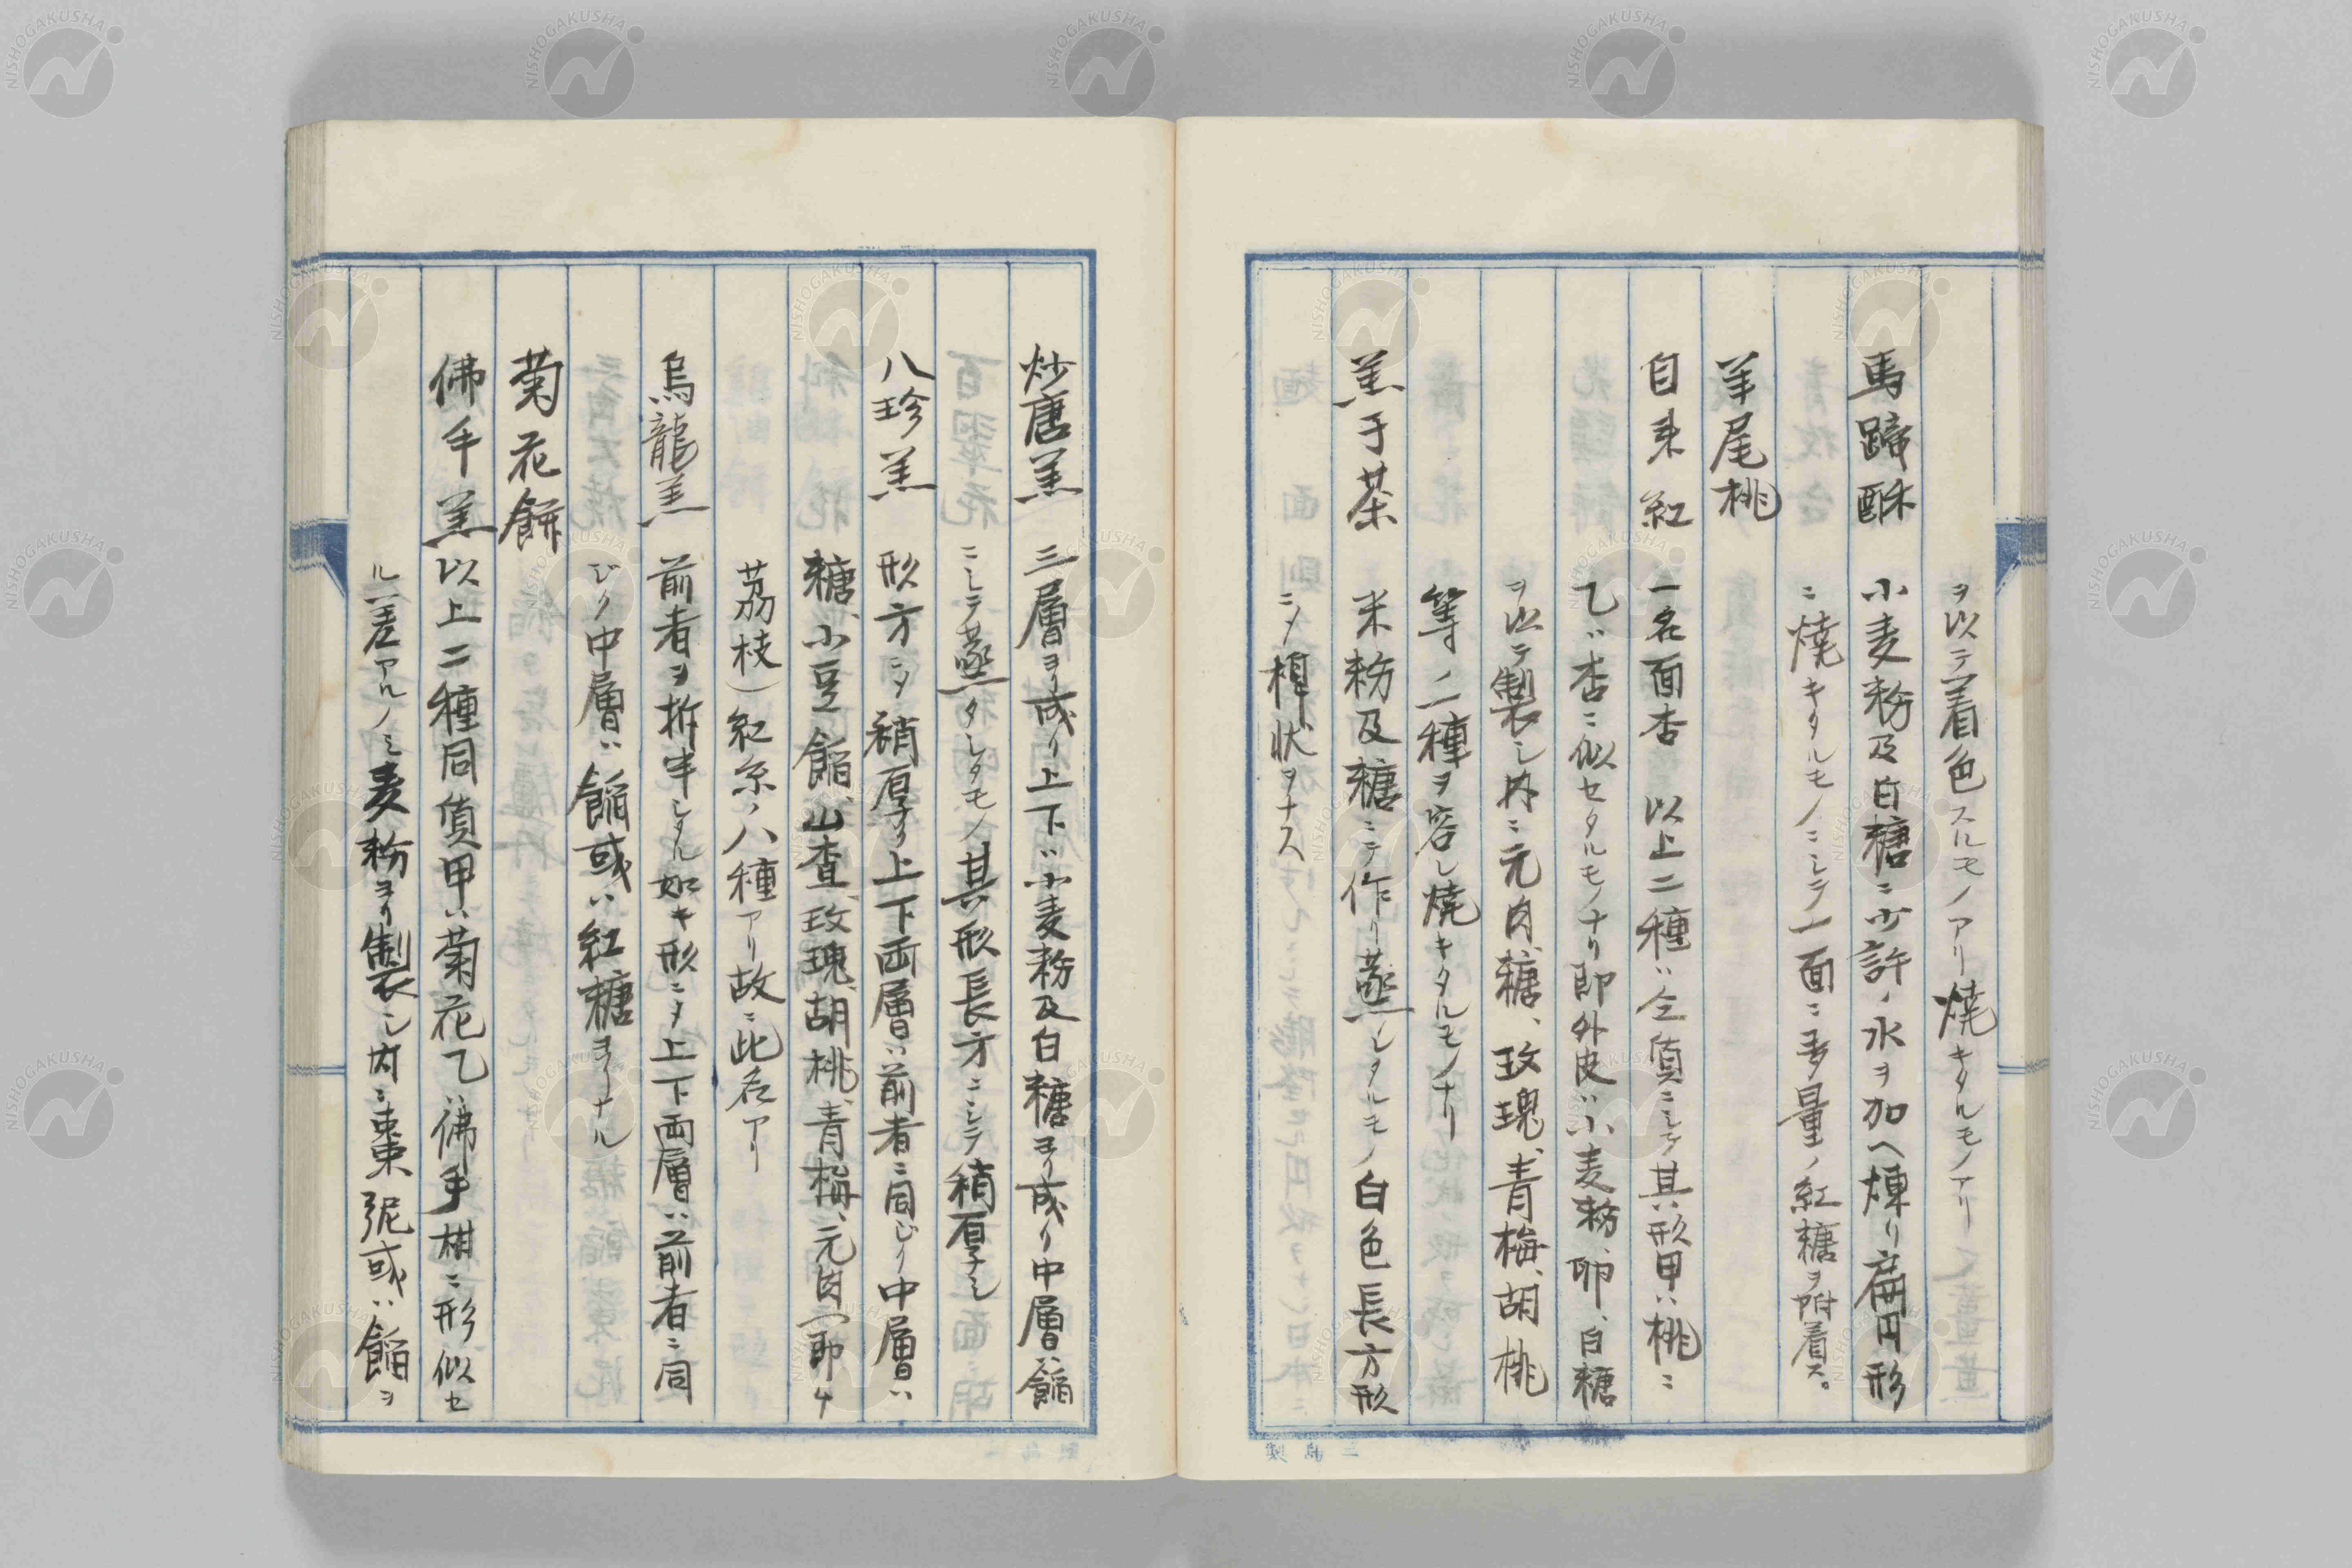 ヲ以テ着色スルモノアリ焼キタルモノアリ
馬蹄酥 小麦粉及白糖ニ少許ノ水ヲ加ヘ煉リ扁円形
ニ焼キタルモノニシテ一面ニ多量ノ紅糖ヲ附着ス。
羊尾桃
自来紅 一名面杏 以上二種ハ仝質ニシテ其形甲ハ桃ニ
乙ハ杏ニ似セタルモノナリ即外皮ハ小麦粉、卵、白糖
ヲ以テ製シ内ニ元肉、糖、玫瑰、青梅、胡桃
等ノ二種ヲ容レ焼キタルモノナリ
羔于茶 米粉及糖ニテ作リ蒸シタルモノ白色長方形
ニメ樿状ヲナス
炒唐羔 三層ヨリ成リ上下ハ小麦粉及白糖ヨリ成リ中層ハ餡
ニシテ蒸タシタモノ其形長方ニシテ稍厚シ
八珍羔 形方ニメ稍厚ク上下両層ハ前者ニ同ジク中層ハ
糖、小豆餡、山査、玫瑰、胡桃、青梅、元肉(即チ
茘枝)紅糸ノ八種アリ故ニ此名アリ
烏龍羔 前者ヲ拆半シタル如キ形ニメ上下両層ハ前者ニ同
ジク中層ハ餡或ハ紅糖ヨリナル
菊花餅
佛手羔 以上二種同質甲ハ菊花乙ハ佛手柑ニ形似セ
ル差アルノミ麦粉ヨリ製シ内ニ棗泥或ハ餡ヲ
三島製
NISHOGAKUSHA